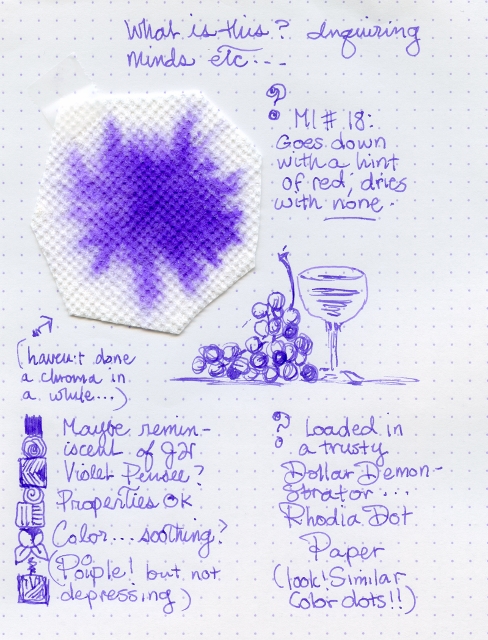 What is this? Inquiring
minds etc...
? MI # 18:
Goes down
with a hint
of red, dries
with none.
(haven't done
a chroma in
a while...)
Maybe remin-
iscent of
Violet Pensee?
Properties OK
Color... soothing?
(Poiple! but not
depressing)
? Loaded in
a trusty
Dollar Demon-
strator...
Rhodia Dot
Paper
(look! Similar
color dots!!)